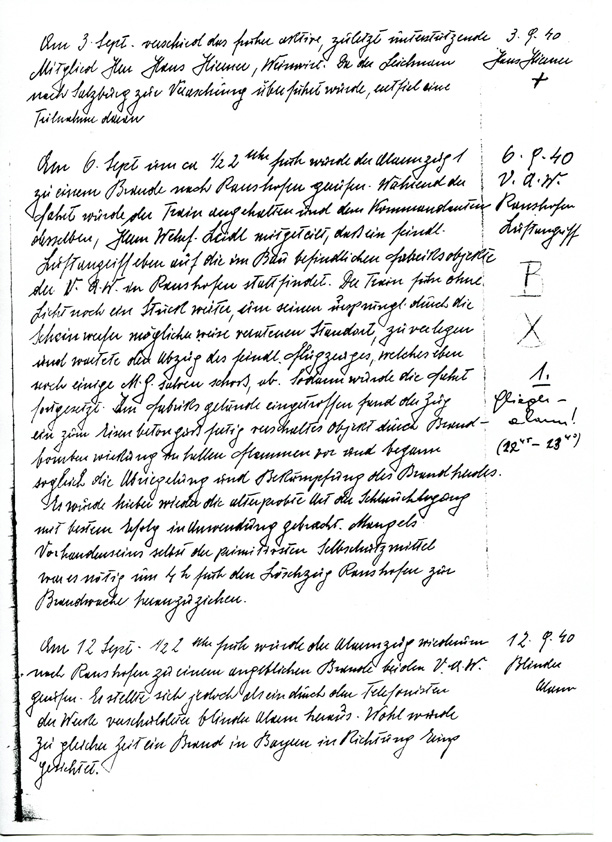 Am 3. Sept. verschied das früher aktive, zuletzt unterstützende
Mitglied Herr Hans Hiemer, Weinwirt. Da der Leichnam
nach Salzburg zur Veraschung überführt wurde, entfiel eine
Teilnahme daran
3. 9. 40
Hans Hiemer
+
Am 6. Sept um ca 1/2 2 Uhr früh wurde der Alarmzug 1
zu einem Brande nach Ranshofen gerufen. Während der
Fahrt wurde der Train angehalten und dem Kommandanten
desselben, Herrn Wehrf. Leidl mitgeteilt, daß ein feindl.
Luftangriff eben auf die im Bau befindlichen Fabriksobjekte
der V. A. W. in Ranshofen stattfindet. Der Train fuhr ohne
Licht noch ein Stück weiter, um seinen ursprungl. durch die
Scheinwerfer möglicherweise verratenen Standort, zu verlegen
und wartete den Abzug des feindl. Flugzeuges, welches eben
noch einige M. G. salven schoß, ab. Sodann wurde die Fahrt
fortgesetzt. Am Fabriksgelände eingetroffen fand der Zug
ein zum Eisenbetonguß fertig verschaltes Objekt durch Brand-
bombenwirkung in hellen Flammen vor und begann
sogleich die Abriegelung und Bekämpfung des Brandherdes.
Es wurde hiebei wieder die alterprobte Art der Schlauchlegung
mit bestem Erfolg in Anwendung gebracht. Mangels
Vorhandenseins selbst der primitivsten Selbschutzmittel
war es nötig um 4 h früh den Löschzug Ranshofen zur
Brandwache heranzuziehen.
6. 9. 40
V. A. W.
Ranshofen
Luftangriff
B
X
1.
Flieger-
alarm!
(22 45 - 23 40)
Am 12 Sept. 1/2 2 Uhr früh wurde der Alarmzug wiederum
nach Ranshofen zu einem angeblichen Brande bei den V. A. W.
gerufen. Es stellte sich jedoch als ein durch den Telefonisten
der Werke verschuldeter blinder Alarm heraus. Wohl wurde
zu gleicher Zeit ein Brand in Bayern in Richtung
gesichtet.
12. 9. 40
Blinder
Alarm